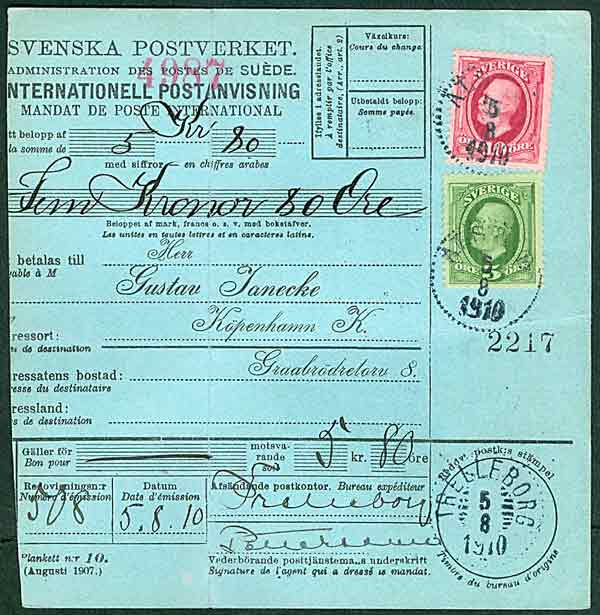 SVENSKA POSTVERKET.
ADMINISTRATION DES POSTES DE SUÈDE.
4987
INTERNATIONELL POSTANVISNING
MANDAT DE POSTE INTERNATIONAL
Ifylles i adresslandet.
A remplir par l'office
destinataire. (Arr., art. 2)
Växelkurs:
Cours du change:
Utbetaldt belopp:
Somme payée.
tt belopp af
la somme de
5 Kr 80
med siffror, en chiffres arabes
Fem Kronor 80 Öre
Beloppet af mark, francs o. s. v. med bokstafver.
Les unités en toutes lettres et en caractères latins.
betalas till
yable à M
Herr
Gustav Janecke
Köpenhamn K.
ressort:
n de destination
Graabrödretorv 8.
ressatens bostad:
resse du destinataire
ressland:
s de destination
SVERIGE
10 ÖRE
5
8
1910
SVERIGE
ÖRE 5 ÖRE
5
8
1910
2217
Gäller för
Bon pour
motsva-
rande
5 kr. 80 öre
Redovisningsn:r
Numéro d'émission
Datum
Date d'émission
5.8.10
Afsändande postkontor. Bureau expéditeur
Trelleborg
Vederbörande posttjänstema..s underskrift
Signature de l'agent qui a dressé le mandat.
lankett n:r 10.
(Augusti 1907.)
postk:s stämpel
TRELLEBORG
5
8
1910
Timbre du bureau d'origine